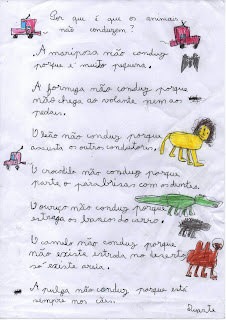 Por que é que os animais
não conduzem?
. A mariposa não conduz
porque é muito pequena.
. A formiga não conduz porque
não chega ao volante nem aos
pedais.
O leão não conduz porque
assusta os outros condutores.
O crocodilo não conduz porque
parte o parabrisas com os dentes.
O ouriço não conduz porque
estraga os bancos do carro.
O camelo não conduz porque
não existe estrada no deserto
só existe areia.
A pulga não conduz porque está
sempre nos cães.
Duarte